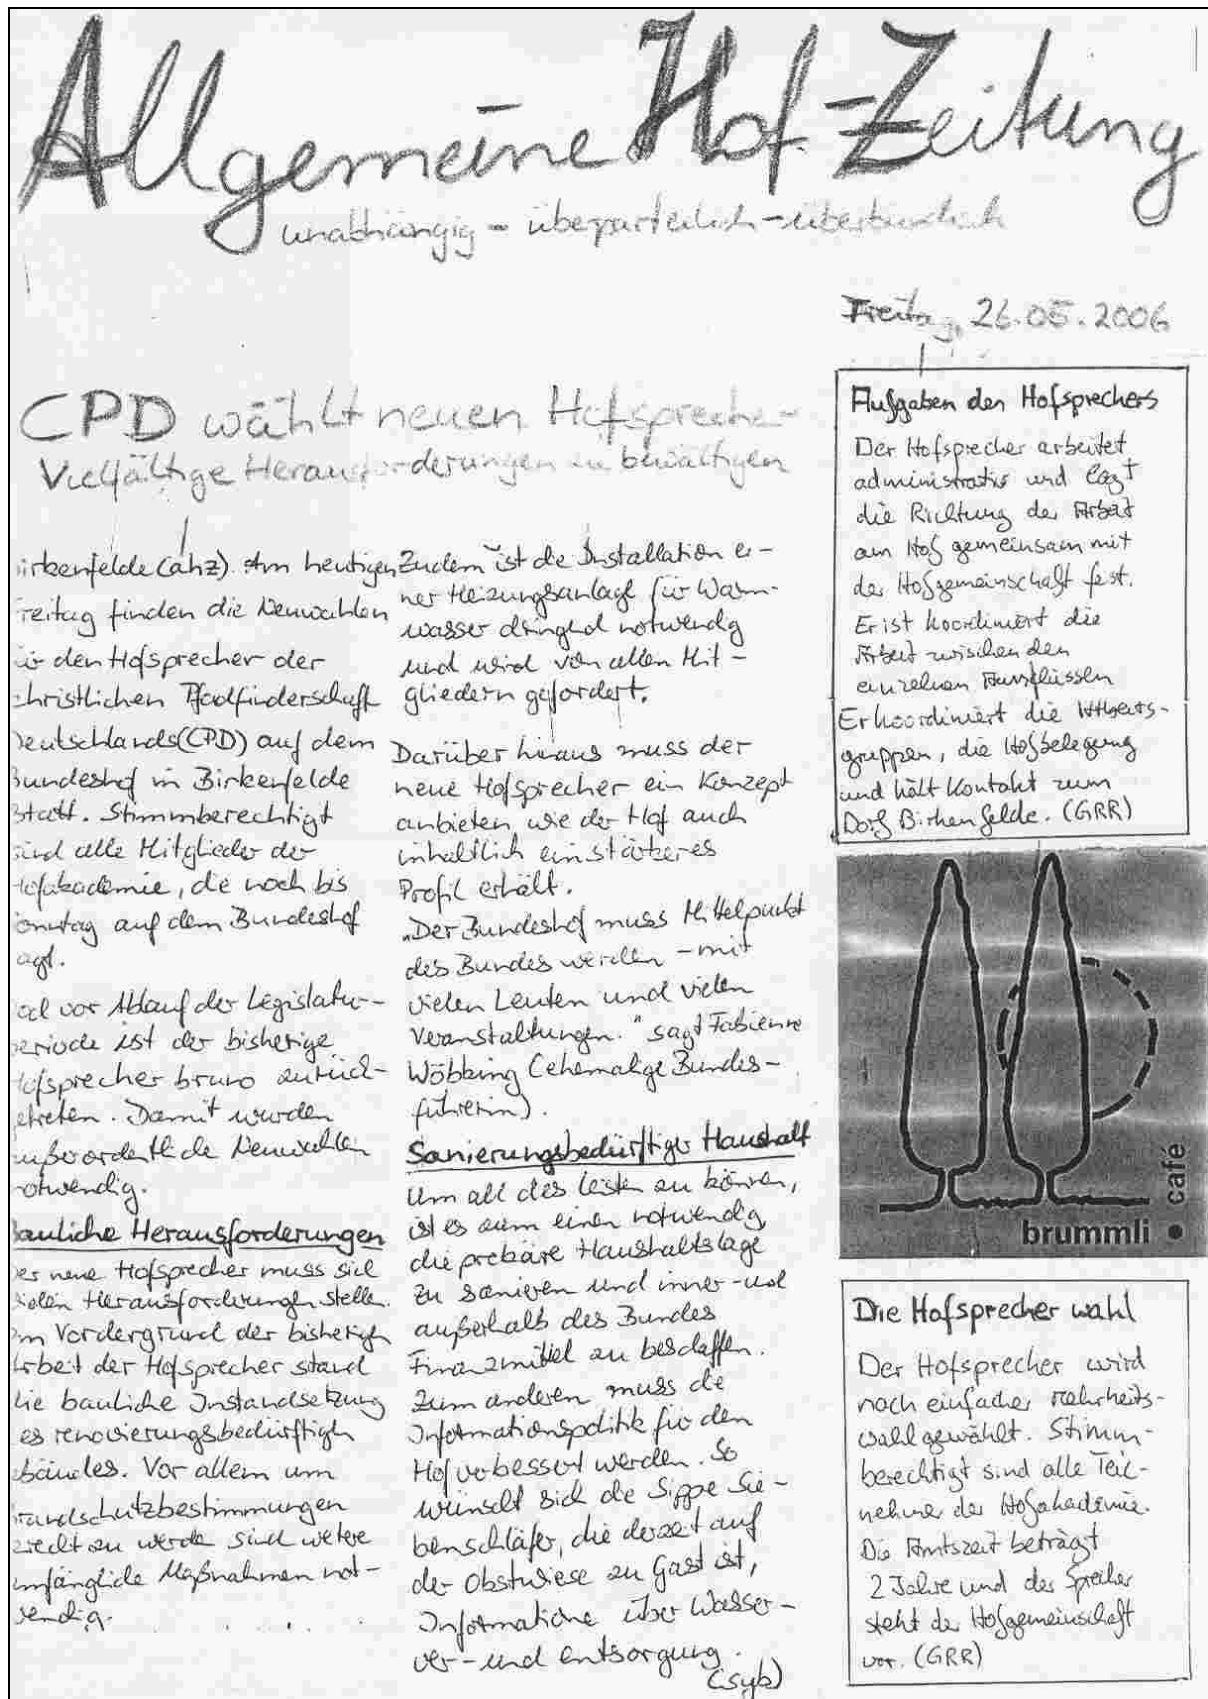 Allgemeine Hof-Zeitung
unabhängig - überparteilich - überbündisch
Freitag, 26.05.2006
CPD wählt neuen Hofsprecher
Vielfältige Herausforderungen zu bewältigen
irkenfelde (ahz). Am heutigen
reitag finden die Neuwahlen
ür den Hofsprecher der
christlichen Pfadfinderschaft
Deutschlands (CPD) auf dem
Bundeshof in Birkenfelde
statt. Stimmberechtigt
sind alle Mitglieder der
Hofakademie, die noch bis
onntag auf dem Bundeshof
agt.
vor Ablauf der Legislatur-
periode ist der bisherige
Hofsprecher bruno zurück-
getreten. Damit wurden
außerordentliche Neuwahlen
notwendig.
Bauliche Herausforderungen
Der neue Hofsprecher muss sich
vielen Herausforderungen stellen.
Im Vordergrund der bisherigen
Arbeit der Hofsprecher stand
die bauliche Instandsetzung
es renovierungsbedürftigen
ebäudes. Vor allem um
randschutzbestimmungen
erecht zu werden sind weitere
umfängliche Maßnahmen not-
wendig.
Zudem ist die Installation ei-
ner Heizungsanlage für Warm-
wasser dringend notwendig
und wird von allen Mit-
gliedern gefordert.
Darüber hinaus muss der
neue Hofsprecher ein Konzept
anbieten, wie der Hof auch
inhaltlich ein stärkeres
Profil erhält.
"Der Bundeshof muss Mittelpunkt
des Bundes werden - mit
vielen Leuten und vielen
Veranstaltungen." sagt Fabienne
Wöbbing (ehemalige Bundes-
führerin).
Sanierungsbedürftiger Haushalt
Um all das leisten zu können,
ist es zum einen notwendig
die prekäre Haushaltslage
zu sanieren und inner- und
außerhalb des Bundes
Finanzmittel zu beschaffen.
Zum anderen muss die
Informationspolitik für den
Hof verbessert werden. So
wünscht sich die Sippe Sie-
benschläfer, die derzeit auf
der Obstwiese zu Gast ist,
Informationen über Wasser-
ver- und entsorgung.
(syb)
Aufgaben des Hofsprechers
Der Hofsprecher arbeitet
administrativ und legt
die Richtung der Arbeit
am Hof gemeinsam mit
der Hofgemeinschaft fest.
Er ist koordiniert die
Arbeit zwischen den
einzelnen Ausschüssen
Er koordiniert die Arbeits-
gruppen, die Hofbelegung
und hält Kontakt zum
Dorf Birkenfelde. (GRR)
café
brummli
Die Hofsprecher wahl
Der Hofsprecher wird
nach einfacher Mehrheits-
wahl gewählt. Stimm-
berechtigt sind alle Teil-
nehmer der Hofakademie.
Die Amtszeit beträgt
2 Jahre und der Sprecher
steht der Hofgemeinschaft
vor. (GRR)